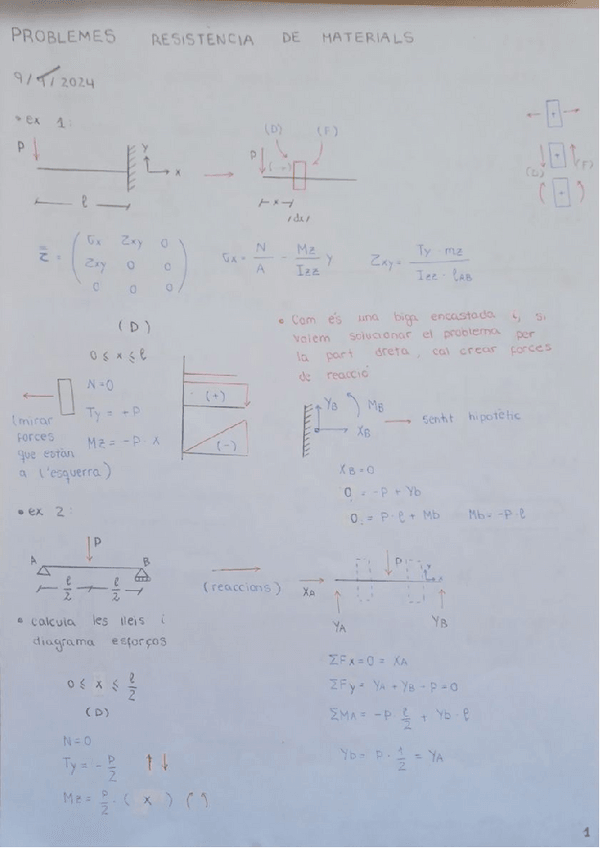 PROBLEMES RESISTÈNCIA DE MATERIALS
9/9/2024
• ex 1:
P
y
x
ℓ
(D) (F)
P
(-)
x
dx
(D) (F)
σx τxy 0
τxy 0 0
0 0 0
σx = N/A - Mz/Izz y
τxy = Ty · mz / Izz · ℓAB
(D)
0 ≤ x ≤ ℓ
N=0
Ty = +P
Mz = -P · x
(mirar
forces
que estan
a l'esquerra)
(+)
(-)
• Com és una biga encastada i, si
volem solucionar el problema per
la part dreta, cal crear forces
de reacció
YB MB
XB
sentit hipotètic
XB=0
0 = -P + Yb
0 = P·ℓ + Mb Mb = -P·ℓ
• ex 2:
P
A B
ℓ/2 ℓ/2
(reaccions)
XA
P
x
YA YB
• calcula les lleis i
diagrama esforços
0 ≤ x ≤ ℓ/2
(D)
N=0
Ty = - P/2
Mz = P/2 · ( x )
ΣFx=0 = XA
ΣFy = YA + YB - P = 0
ΣMA = -P · ℓ/2 + Yb · ℓ
Yb = P · 1/2 = YA
1